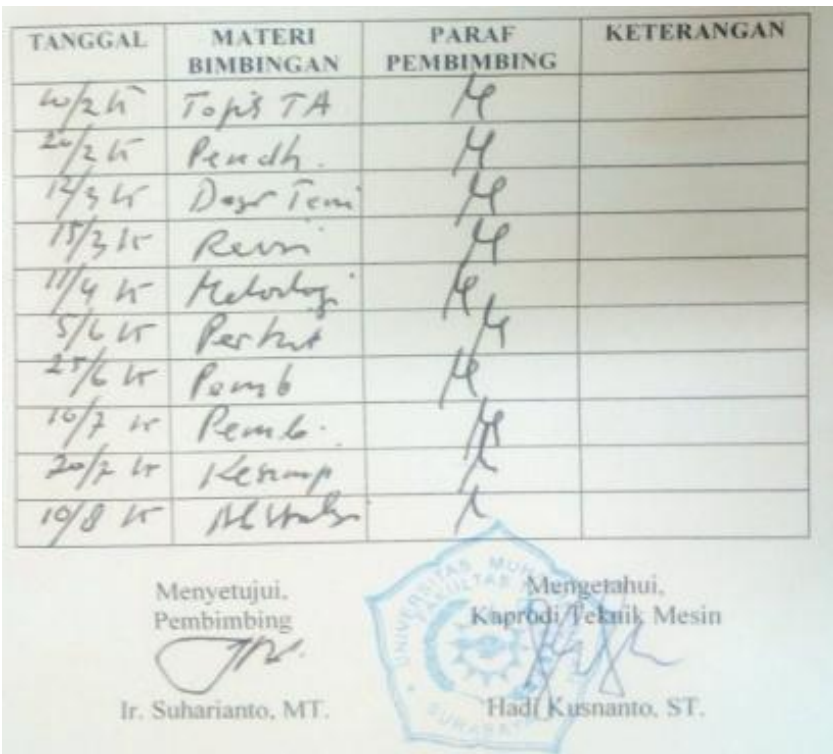 TANGGAL MATERI BIMBINGAN PARAF PEMBIMBING KETERANGAN
10/2 15 Topis TA
20/2 15 Pendh.
12/3 15 Dasar Teori
15/3 15 Revisi
11/4 15 Metodologi
5/6 15 Perhit
25/6 15 Pemb
16/7 15 Pemb.
20/7 15 Kesimp
10/8 15 Abstraksi
Menyetujui,
Pembimbing
Ir. Suharianto, MT.
Mengetahui,
Kaprodi Teknik Mesin
Hadi Kusnanto, ST.
UNIVERSITAS MUH
FAKULTAS
SURABA